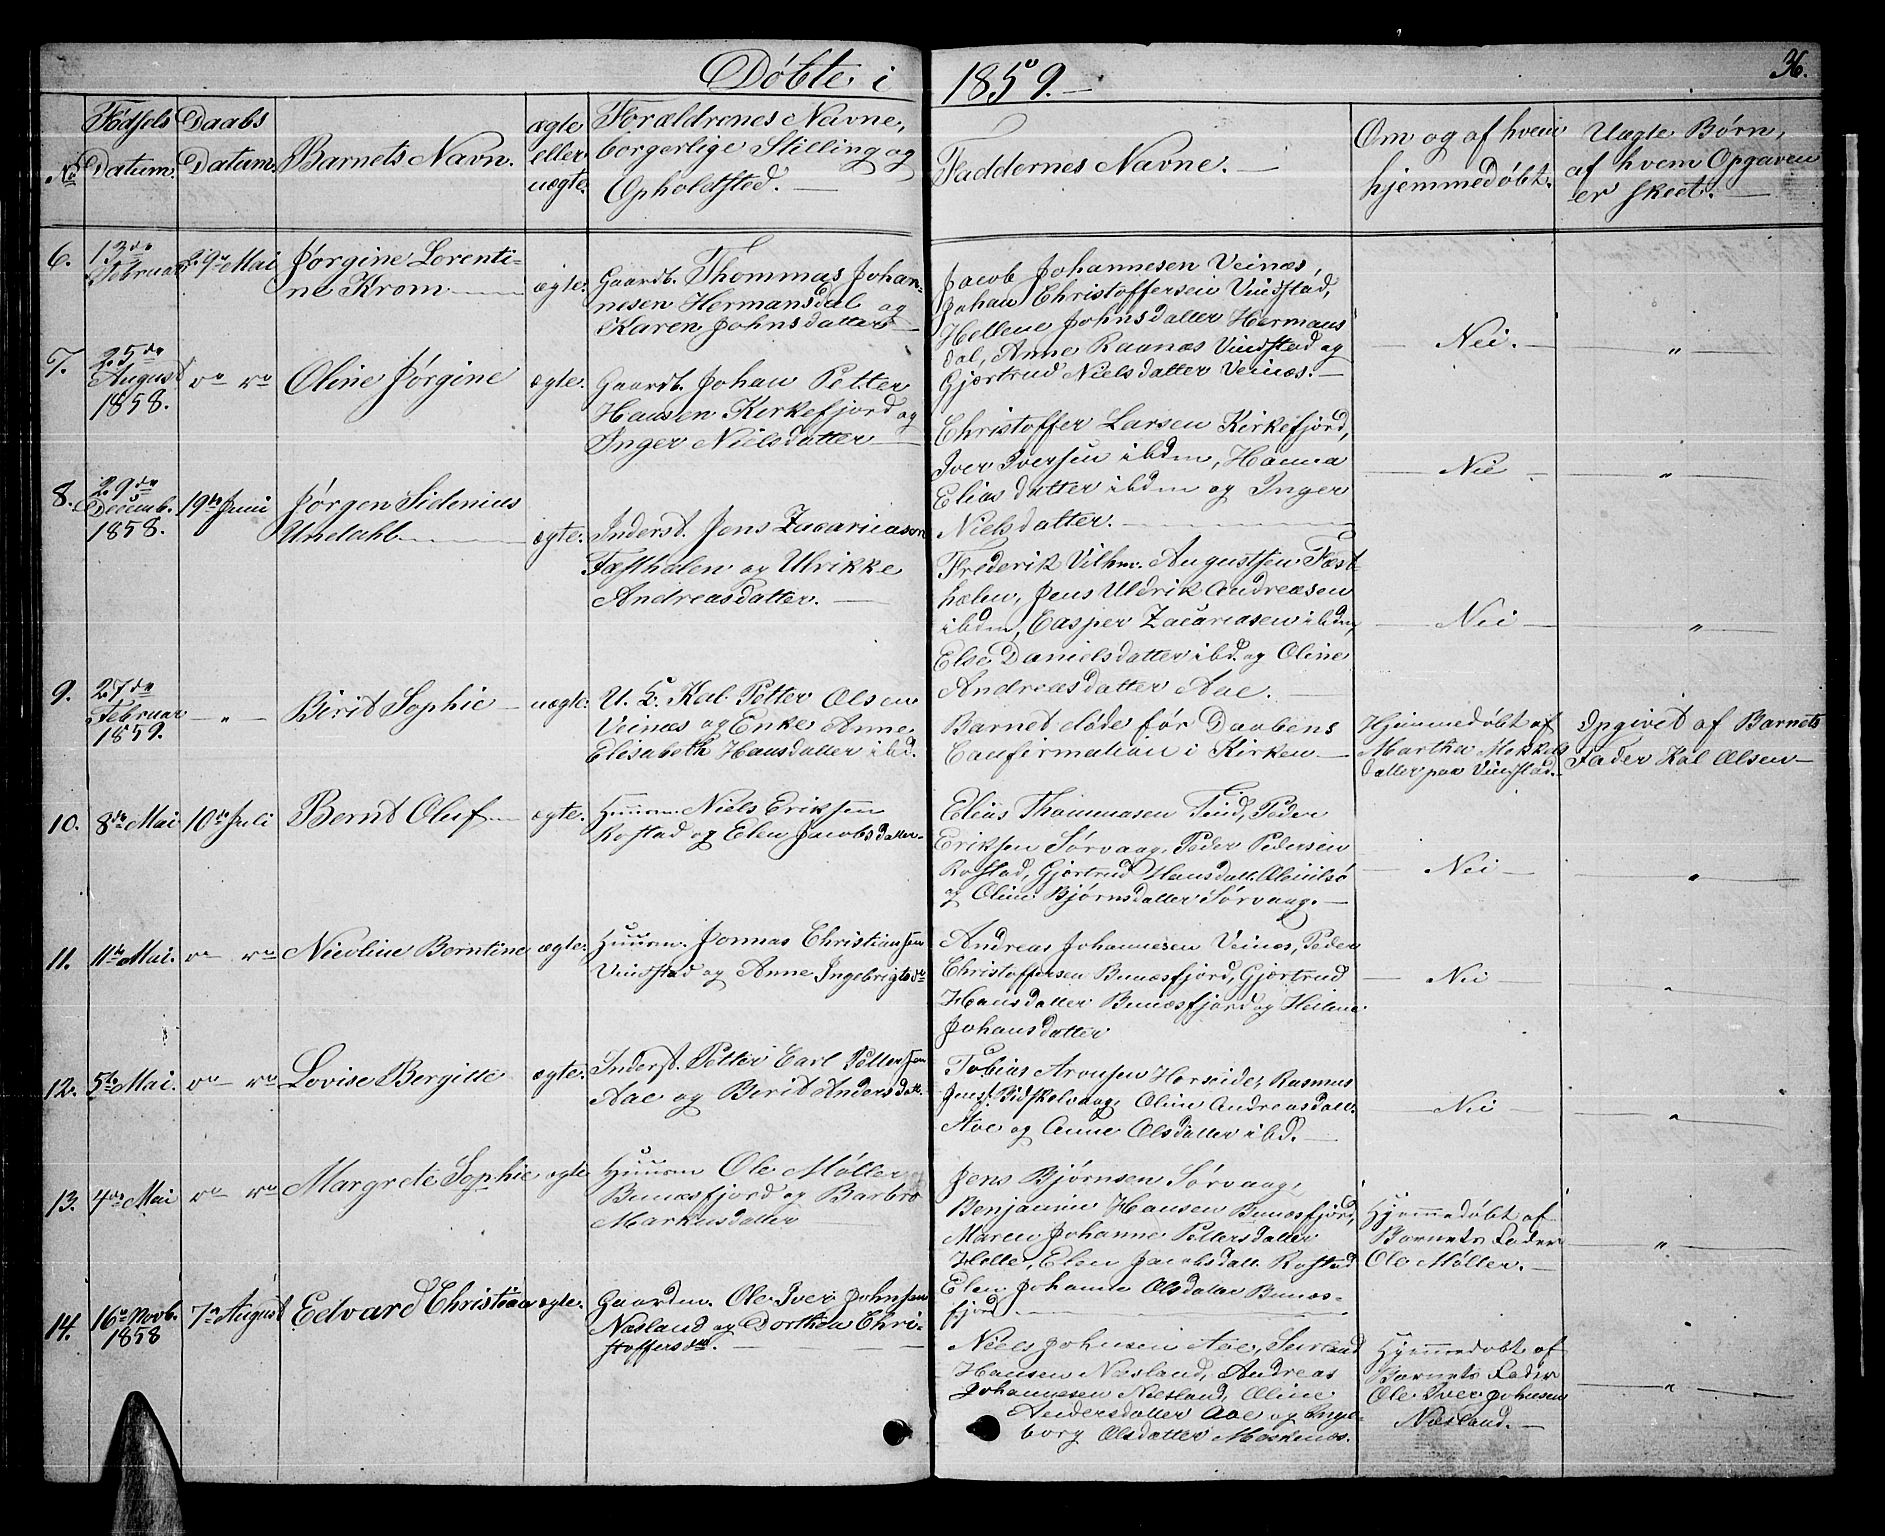 Døbte i 1859.
36.
No
Fødsels Datum.
Daabs Datum.
Barnets Navn.
ægte eller uægte.
Forældrenes Navne,
borgerlige Stilling og
Opholdsted.
Faddernes Navne.
Om og af hvem
hjemmedøbt.
Uægte Børn,
af hvem Opgaven
er skeet.
6. 13de Februar 29de Mai Jørgine Lorenti-
ne Krom ægte. Gaardb. Thommas Johan-
nesen Hermansdal og
Karen Johnsdatter
Jacob Johannesen Veinæs,
Johan Christoffersen Vindstad,
Hellene Johnsdatter Hermans
dal, Anne Raanæs Vindstad og
Gjærtrud Nielsdatter Veinæs.
Nei. "
7. 25de August 1858. do do Oline Jørgine ægte. Gaardb. Johan Petter
Hansen Kirkefjord og
Inger Nielsdatter
Christoffer Larsen Kirkefjord,
Iver Iversen ibdm, Hanna
Elias datter ibdm og Inger
Nielsdatter.
Nei "
8. 29de Decemb. 1858. 19de Juni Jørgen Sidenius
Undahl ægte. Inderst. Jens Zacariason
Fæsthælen og Ulrikke
Andreasdatter.
Frederik Vilhm. Augustsen Fæst-
hælen, Jens Uldrik Andreasen
ibdm, Casper Zacariasen ibdm,
Else Danielsdatter ibd. og Oline
Andreasdatter Aae.
Nei "
9. 27de Februar 1859. " Birit Sophie uægte. U. K. Kal Petter Olsen
Veinæs og Enke Anne
Elisabeth Hansdatter ibd.
Barnet døde før Daabens
Confermation i Kirken
Hjemmedøbt af
Martha Mekkels
datter paa Vindstad.
Opgivet af Barnets
Fader Kal Olsen
10. 8de Mai 10de Juli Bernt Oluf ægte. Huusm. Niels Eriksen
Rostad og Elen Jacobsdatter
Elias Thommasen Tind, Peder
Eriksen Sørvaag, Peder Pedersen
Rostad, Gjærtrud Hansdatt.
og Oline Bjørnsdatter Sørvaag.
Nei "
11. 11te Mai. do do Nicoline Berntine ægte. Huusm. Jonnas Christiansen
Vindstad og Anne Ingebrigtsdr
Andreas Johannesen Veinæs, Peder
Christoffersen Bunæsfjord, Gjærtrud
Hansdatter Bunæsfjord og Helene
Johansdatter
Nei "
12. 5te Mai. do do Lovise Bergitte ægte. Inderst. Petter Carl Pettersen
Aae og Berit Andersdatt.
Tobias Aronsen Horseidet, Rasmus
Jens. Oline Andreasdatt.
Aae og Anne Olsdatter ibd.
Nei "
13. 4de Mai do do Margrete Sophie ægte Huusm Ole Møller
Bunæsfjord og Barbro
Markusdatter
Jens Bjørnsen Sørvaag,
Benjamin Hansen Bunæsfjord,
Maren Johanne Pettersdatter
Helle, Elen Jacobsdatt. Rostad
Elen Johanne Olsdatter Bunæs-
fjord
Hjemmedøbt af
Barnets Fader
Ole Møller. "
14. 16de Novb. 1858 7de August Edvard Christian ægte. Gaardm. Ole Iver Johnsen
Næsland og Dorthea Chri-
stoffersdr.
Niels Johnsen Aae,
Hansen Næsland, Andreas
Johannesen Næsland, Oline
Andersdatter Aae og Inge-
borg Olsdatter Moskenæs.
Hjemmedøbt af
Barnets Fader
Ole Iver Johnsen
Næsland. "